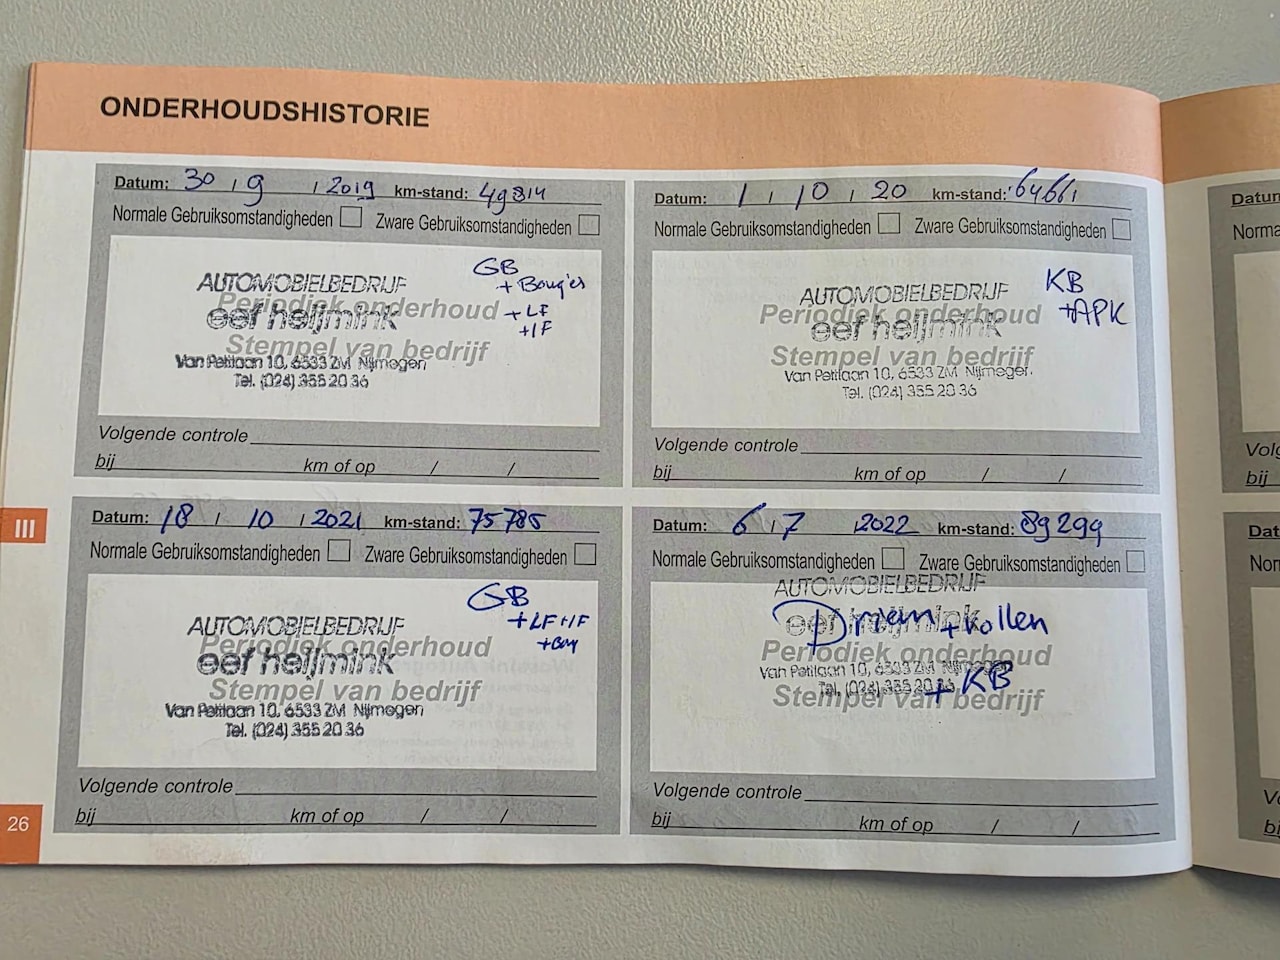 ONDERHOUDSHISTORIE
Datum: 30 / 9 / 2019 km-stand: 49814
Normale Gebruiksomstandigheden Zware Gebruiksomstandigheden
GB
+ Bougies
+ LF
+ IF
AUTOMOBIELBEDRIJF
Periodiek onderhoud
eef heijmink
Stempel van bedrijf
Van Peltlaan 10, 6533 ZM Nijmegen
Tel. (024) 355 20 36
Volgende controle
bij km of op / /
Datum: 1 / 10 / 20 km-stand: 64661
Normale Gebruiksomstandigheden Zware Gebruiksomstandigheden
KB
+APK
AUTOMOBIELBEDRIJF
Periodiek onderhoud
eef heijmink
Stempel van bedrijf
Van Peltlaan 10, 6533 ZM Nijmegen.
Tel. (024) 355 20 36
Volgende controle
bij km of op / /
III
Datum: 18 / 10 / 2021 km-stand: 75785
Normale Gebruiksomstandigheden Zware Gebruiksomstandigheden
GB
+LF+IF
+Boug
AUTOMOBIELBEDRIJF
Periodiek onderhoud
eef heijmink
Stempel van bedrijf
Van Peltlaan 10, 6533 ZM Nijmegen
Tel. (024) 355 20 36
Volgende controle
bij km of op / /
Datum: 6 / 7 2022 km-stand: 89299
Normale Gebruiksomstandigheden Zware Gebruiksomstandigheden
AUTOMOBIELBEDRIJF
eef heijmink
D.riem + rollen
Periodiek onderhoud
Van Peltlaan 10, 6533 ZM Nijmegen
Tel. (024) 355 20 36
+ KB
Stempel van bedrijf
Volgende controle
bij km of op / /
26